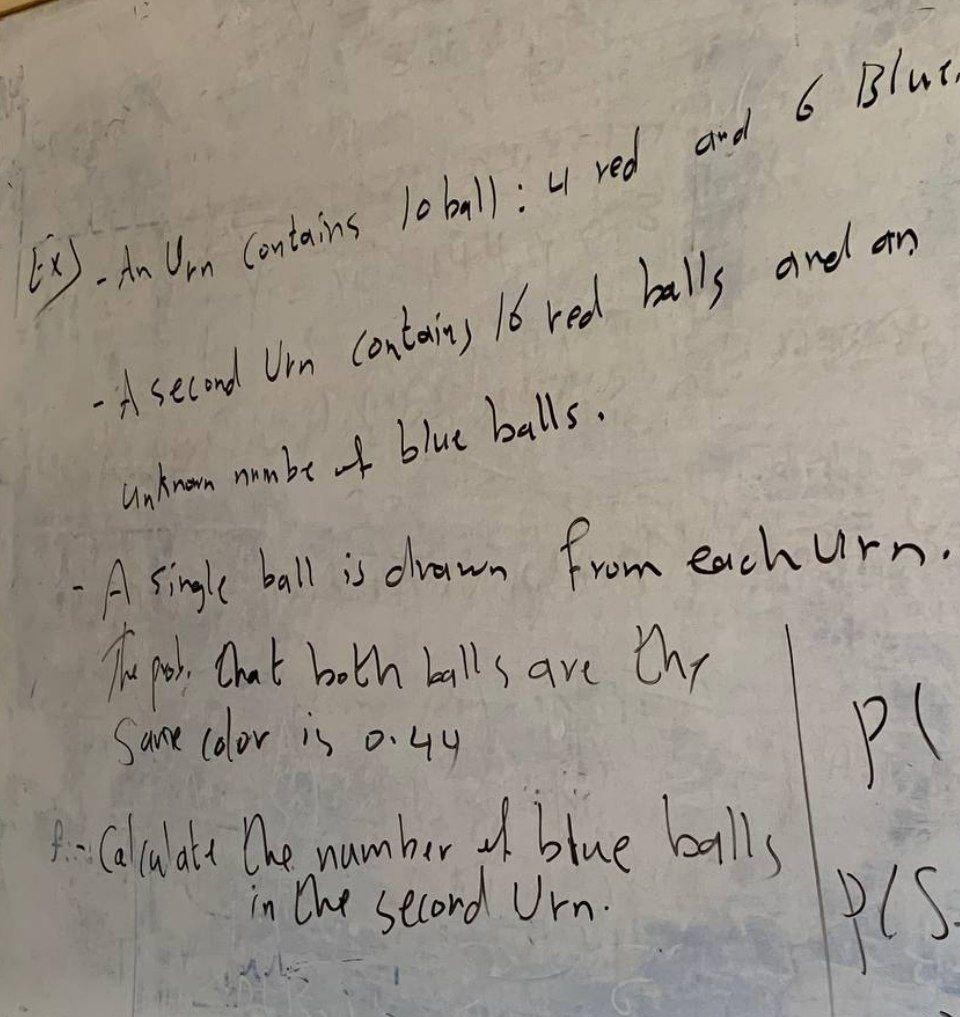 Ex) - An Urn Contains 10 ball : 4 red and 6 Blue.
- A second Urn contains 16 red balls and an
unknown numbe of blue balls.
- A single ball is drawn from each urn.
The prob. that both balls are the
Same color is 0.44
- Calculate the number of blue balls
in the second Urn.
P(
P(S